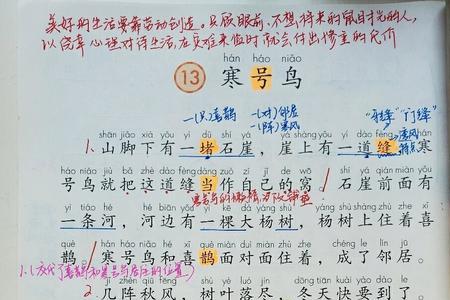 美好的生活要靠劳动创造。只顾眼前、不想将来的鼠目寸光的人,
以侥幸心理对待生活,在灾难来临时就会付出惨重的代价
hán háo niǎo
13 寒号鸟
一(只)喜鹊 一(对)邻居 "牙缝" "门缝"
一(阵)寒风
shān jiǎo xià yǒu yì dǔ shí yá yá shàng yǒu yí dào fèng hán
1、山脚下有一堵石崖,崖上有一道缝,寒
háo niǎo jiù bǎ zhè dào fèng dàng zuò zì jǐ de wō shí yá qián miàn yǒu
号鸟就把这道缝当作自己的窝。石崖前面有
yì tiáo hé hé biān yǒu yì kē dà yáng shù yáng shù shàng zhù zhe xǐ
一条河,河边有一棵大杨树,杨树上住着喜
què hán háo niǎo hé xǐ què miàn duì miàn zhù zhe chéng le lín jū
鹊。寒号鸟和喜鹊面对面住着,成了邻居。
jǐ zhèn qiū fēng shù yè luò jìn dōng tiān kuài yào dào le
2、几阵秋风,树叶落尽,冬天快要到了。